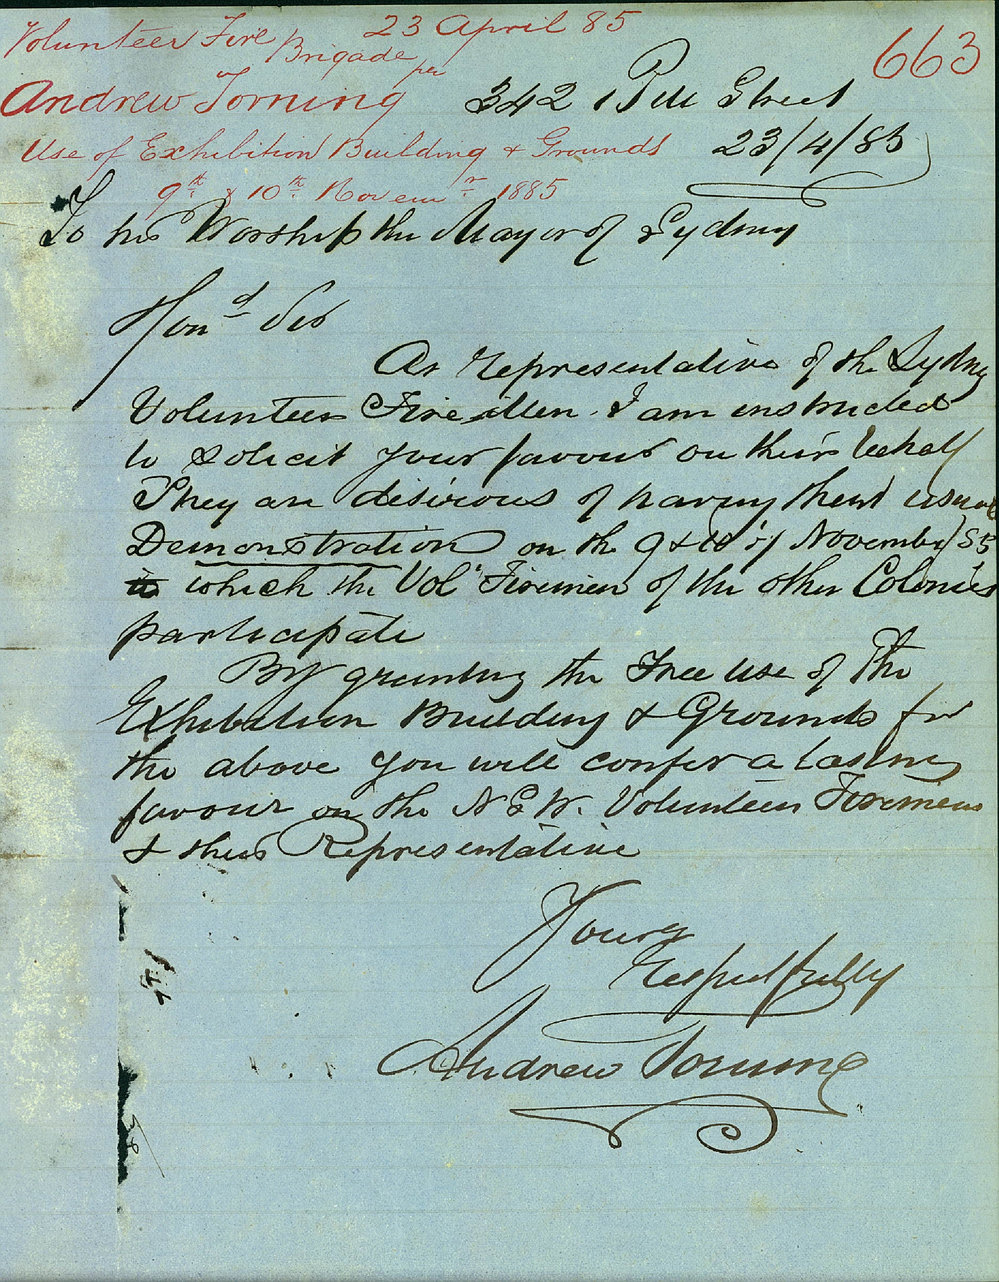 Volunteer Fire Brigade 23 April 85
663
per
Andrew Torning
342 Pitt Street
Use of Exhibition Building & Grounds
23/4/85
9th & 10th Novemr 1885
To his Worship the Mayor of Sydney
Hond Sir
As Representative of the Sydney
Volunteer Fire Men I am instructed
to solicit your favour on their behalf
They are desirous of having their usual
Demonstration on the 9 & 10 of November 85
in which the Vol Firemen of the other Colonies
participate
By granting the Free use of the
Exhibition Building & Grounds for
the above you will confer a lasting
favour on the N.S.W. Volunteer Firemen
& their Representative
Yours
Respectfully
Andrew Torning